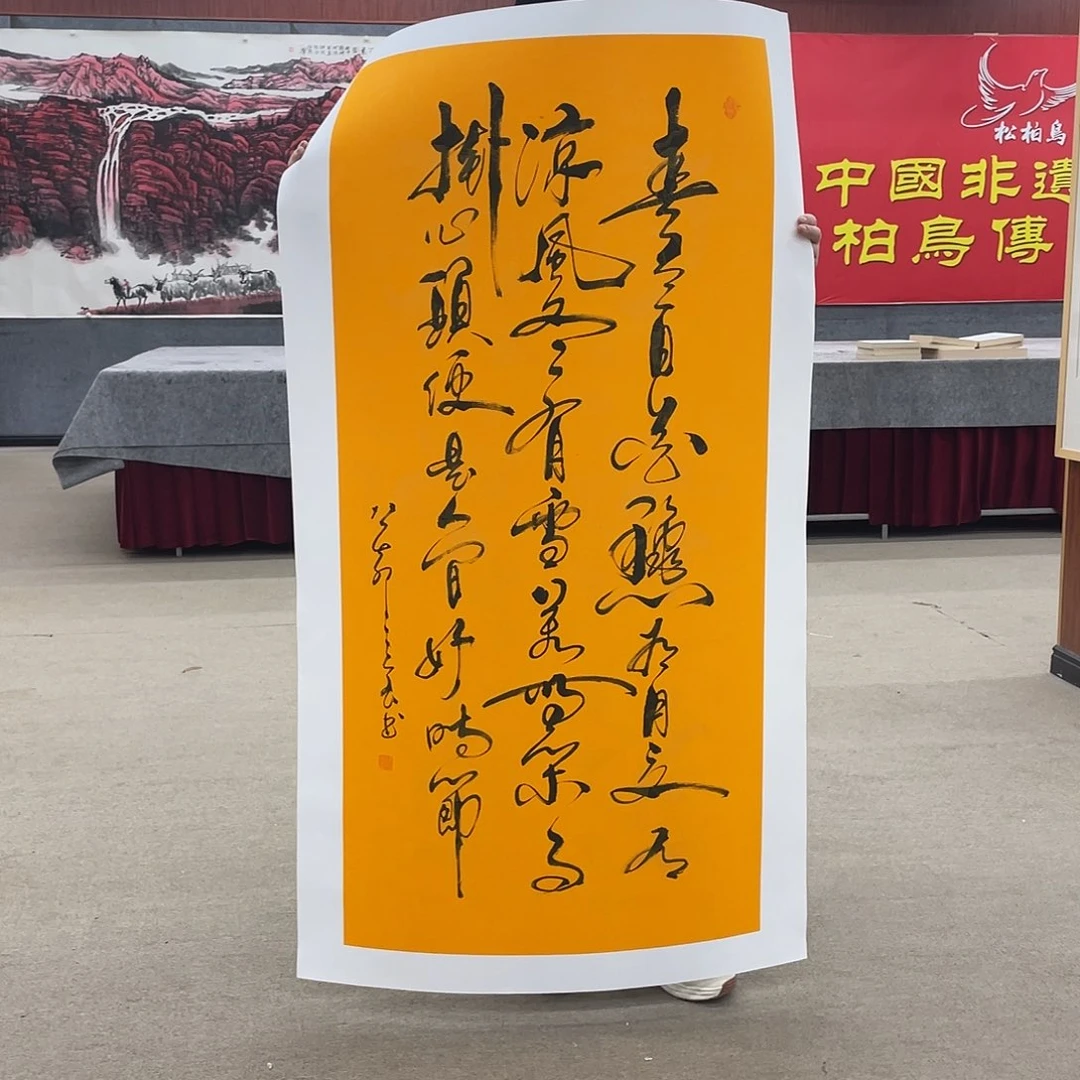 春有百花秋有月夏有
涼風冬有雪若無閑事
掛心頭便是人間好時節
癸卯
書
松柏鳥
中國非遺
柏鳥傳